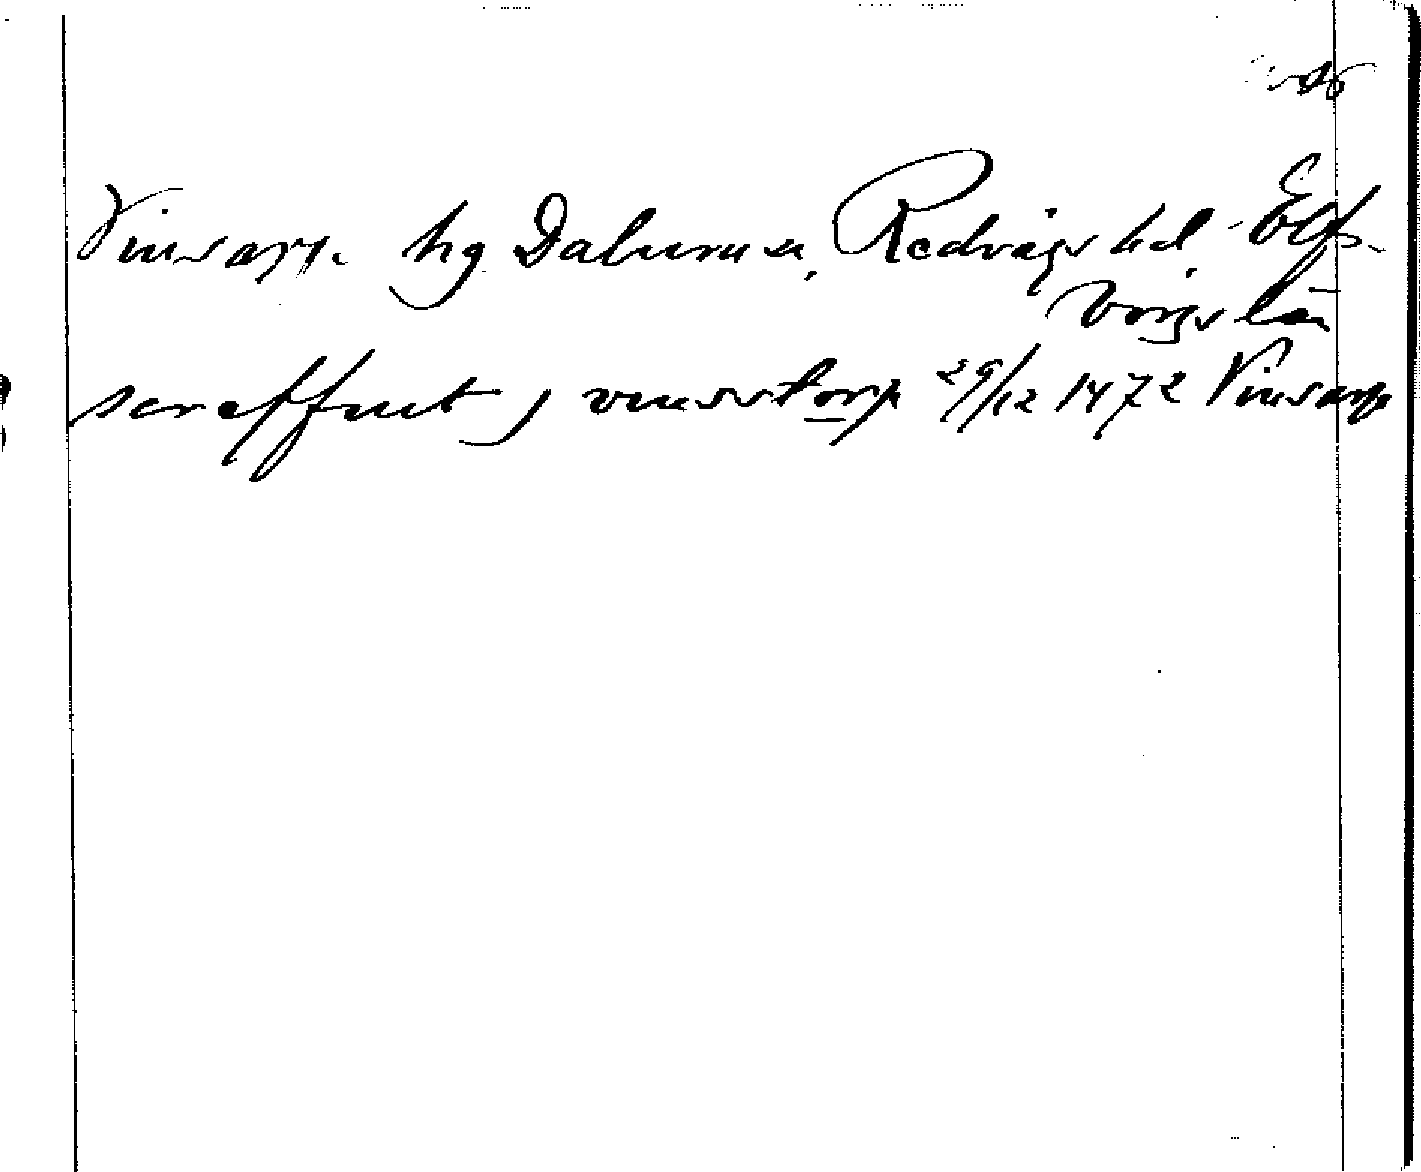 Vinsarp. hg Dalums sn, Redvägs hd. Elfs-
borgs län
screffuit j vinsstorp 29/12 1472 Vinsarp